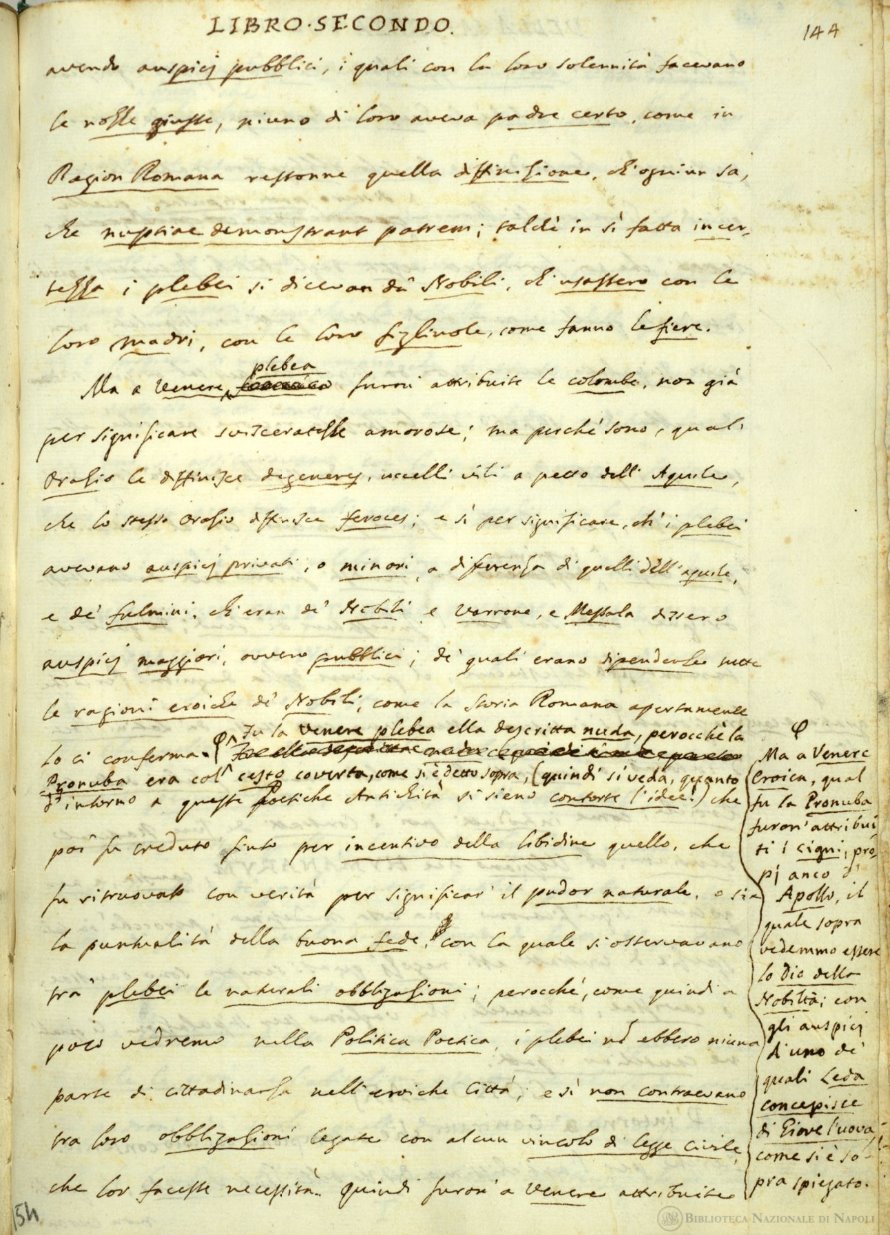 LIBRO·SECONDO.
144
avendo auspicj pubblici, i quali con la loro solennità facevano
le nozze giuste, niuno di loro aveva padre certo, come in
Ragion Romana restonne quella diffinizione, ch'ogniun sa,
che nuptiae demonstrant patrem; talchè in sì fatta incer-
tezza i plebei si dicevan da' Nobili, ch'usassero con le
loro madri, con le loro figliuole, come fanno le fiere.
Ma a Venere plebea furon' attribuite le colombe, non già
per significare svisceratezze amorose; ma perchè sono, quali
Orazio le diffinisce degeneres, uccelli vili a petto dell'Aquile,
che lo stesso Orazio diffinisce feroces; e sì per significare, ch'i plebei
avevano auspicj privati, o minori, a differenza di quelli dell'aquile,
e de' fulmini, ch'eran de' Nobili, e Varrone, e Messala dissero
auspicj maggiori, ovvero pubblici; de' quali erano dipendenze tutte
le ragioni eroiche de' Nobili, come la Storia Romana apertamente
lo ci conferma.
Fu la Venere plebea ella descritta nuda, perocchè la
Pronuba era col cesto coverta, come si è detto sopra, (quindi si veda, quanto
d'intorno a queste Poetiche Antichità si sieno contorte l'idee!) che
poi fu creduto finto per incentivo della libidine quello, che
fu ritruovato con verità per significar' il pudor naturale, o sia
la puntualità della buona fede, con la quale si osservavano
tra' plebei le naturali obbligazioni; perocchè, come quindi a
poco vedremo nella Politica Poetica, i plebei non ebbero niuna
parte di cittadinanza nell'eroiche Città; e sì non contraevano
tra loro obbligazioni legate con alcun vincolo di legge civile,
che lor facesse necessità. Quindi furon' a Venere attribuite
Ma a Venere
Eroica, qual
fu la Pronuba
furon' attribui
ti i cigni, pro-
pj anco d'
Apollo, il
quale sopra
vedemmo essere
lo Dio della
Nobiltà; con
gli auspicj
d'uno de'
quali Leda
concepisce
di Giove l'uova,
come si è so-
pra spiegato.
154
BIBLIOTECA NAZIONALE DI NAPOLI